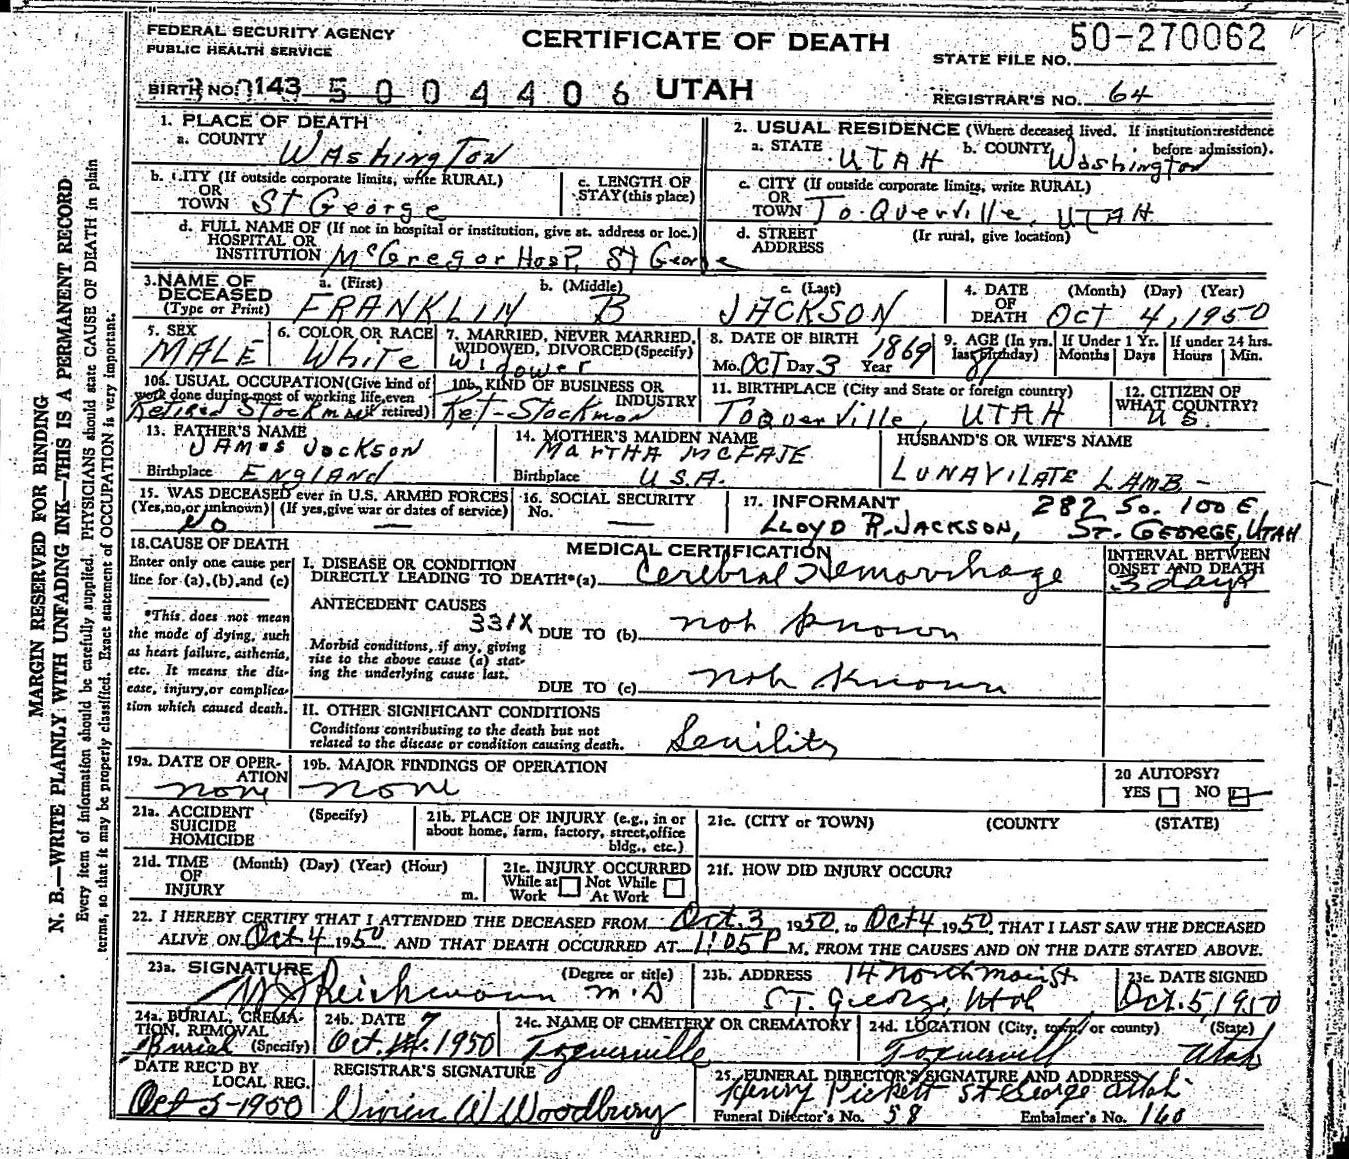 FEDERAL SECURITY AGENCY
PUBLIC HEALTH SERVICE
CERTIFICATE OF DEATH
50-270062
STATE FILE NO.
BIRTH NO. 143 5004406 UTAH
REGISTRAR'S NO. 64
MARGIN RESERVED FOR BINDING
N. B.—WRITE PLAINLY WITH UNFADING INK—THIS IS A PERMANENT RECORD
Every item of information should be carefully supplied. PHYSICIANS should state CAUSE OF DEATH in plain
terms, so that it may be properly classified. Exact statement of OCCUPATION is very important.
1. PLACE OF DEATH
a. COUNTY Washington
b. CITY (If outside corporate limits, write RURAL)
OR
TOWN St George
c. LENGTH OF
STAY (this place)
d. FULL NAME OF (If not in hospital or institution, give st. address or loc.)
HOSPITAL OR
INSTITUTION McGregor Hosp, St George
2. USUAL RESIDENCE (Where deceased lived. If institution: residence
before admission).
a. STATE UTAH b. COUNTY Washington
c. CITY (If outside corporate limits, write RURAL)
OR
TOWN To-Querville, UTAH
d. STREET (If rural, give location)
ADDRESS
3. NAME OF DECEASED
(Type or Print)
a. (First) FRANKLIN
b. (Middle) B
c. (Last) JACKSON
4. DATE OF DEATH
(Month) (Day) (Year)
Oct 4, 1950
5. SEX
MALE
6. COLOR OR RACE
White
7. MARRIED, NEVER MARRIED,
WIDOWED, DIVORCED (Specify)
Widower
8. DATE OF BIRTH
Mo. OCT Day 3 Year 1869
9. AGE (In yrs. last birthday)
81
If Under 1 Yr.
Months Days
If under 24 hrs.
Hours Min.
10a. USUAL OCCUPATION (Give kind of
work done during most of working life, even
retired)
Retired Stockman
10b. KIND OF BUSINESS OR
INDUSTRY
Ret-Stockman
11. BIRTHPLACE (City and State or foreign country)
Toquerville, UTAH
12. CITIZEN OF
WHAT COUNTRY?
U S.
13. FATHER'S NAME
JAMES Jackson
Birthplace ENGLAND
14. MOTHER'S MAIDEN NAME
MARTHA MCFATE
Birthplace U.S.A.
HUSBAND'S OR WIFE'S NAME
LUNAVILATE LAMB -
15. WAS DECEASED ever in U.S. ARMED FORCES
(Yes, no, or unknown) (If yes, give war or dates of service)
No —
16. SOCIAL SECURITY
No.
—
17. INFORMANT 282 So. 100 E.
LLOYD R. JACKSON, ST. GEORGE, UTAH
18. CAUSE OF DEATH
Enter only one cause per
line for (a), (b), and (c)
*This does not mean
the mode of dying, such
as heart failure, asthenia,
etc. It means the dis-
ease, injury, or complica-
tion which caused death.
MEDICAL CERTIFICATION
I. DISEASE OR CONDITION
DIRECTLY LEADING TO DEATH*(a) Cerebral Hemorrhage
INTERVAL BETWEEN
ONSET AND DEATH
3 days
ANTECEDENT CAUSES
331X
DUE TO (b) not known
Morbid conditions, if any, giving
rise to the above cause (a) stat-
ing the underlying cause last.
DUE TO (c) not known
II. OTHER SIGNIFICANT CONDITIONS
Conditions contributing to the death but not
related to the disease or condition causing death.
Senility
19a. DATE OF OPER-
ATION
none
19b. MAJOR FINDINGS OF OPERATION
none
20 AUTOPSY?
YES NO
21a. ACCIDENT (Specify)
SUICIDE
HOMICIDE
21b. PLACE OF INJURY (e.g., in or
about home, farm, factory, street, office
bldg., etc.)
21c. (CITY or TOWN) (COUNTY (STATE)
21d. TIME (Month) (Day) (Year) (Hour)
OF
INJURY m.
21e. INJURY OCCURRED
While at Work Not While At Work
21f. HOW DID INJURY OCCUR?
22. I HEREBY CERTIFY THAT I ATTENDED THE DECEASED FROM Oct. 3 1950, to Oct 4 1950, THAT I LAST SAW THE DECEASED
ALIVE ON Oct. 4 1950, AND THAT DEATH OCCURRED AT 1:05 P M, FROM THE CAUSES AND ON THE DATE STATED ABOVE.
23a. SIGNATURE (Degree or title)
Reichmann M.D
23b. ADDRESS 14 North Main St.
ST. George, Utah
23c. DATE SIGNED
Oct. 5, 1950
24a. BURIAL, CREMA-
TION, REMOVAL
Burial (Specify)
24b. DATE 7
Oct. 1950
24c. NAME OF CEMETERY OR CREMATORY
Toquerville
24d. LOCATION (City, town, or county) (State)
Toquerville Utah
DATE REC'D BY
LOCAL REG.
Oct 5-1950
REGISTRAR'S SIGNATURE
Vivien W Woodbury
25. FUNERAL DIRECTOR'S SIGNATURE AND ADDRESS
Henry Pickett St George Utah
Funeral Director's No. 58 Embalmer's No. 160